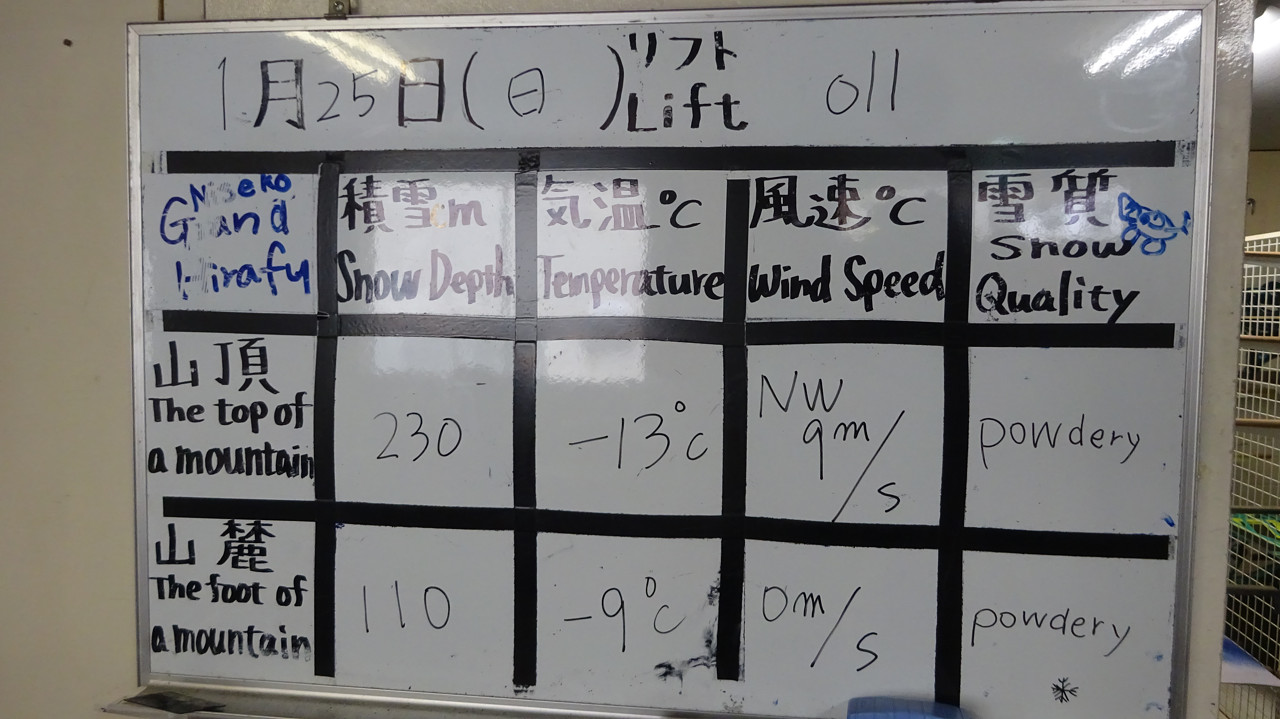 1月25日(日)リフト
Lift oll
Niseko
Grand
Hirafu
積雪cm
Snow Depth
気温℃
Temperature
風速℃
Wind Speed
雪質
Snow
Quality
山頂
The top of
a mountain
230
-13℃
NW
9m/s
powdery
山麓
The foot of
a mountain
110
-9℃
0m/s
powdery